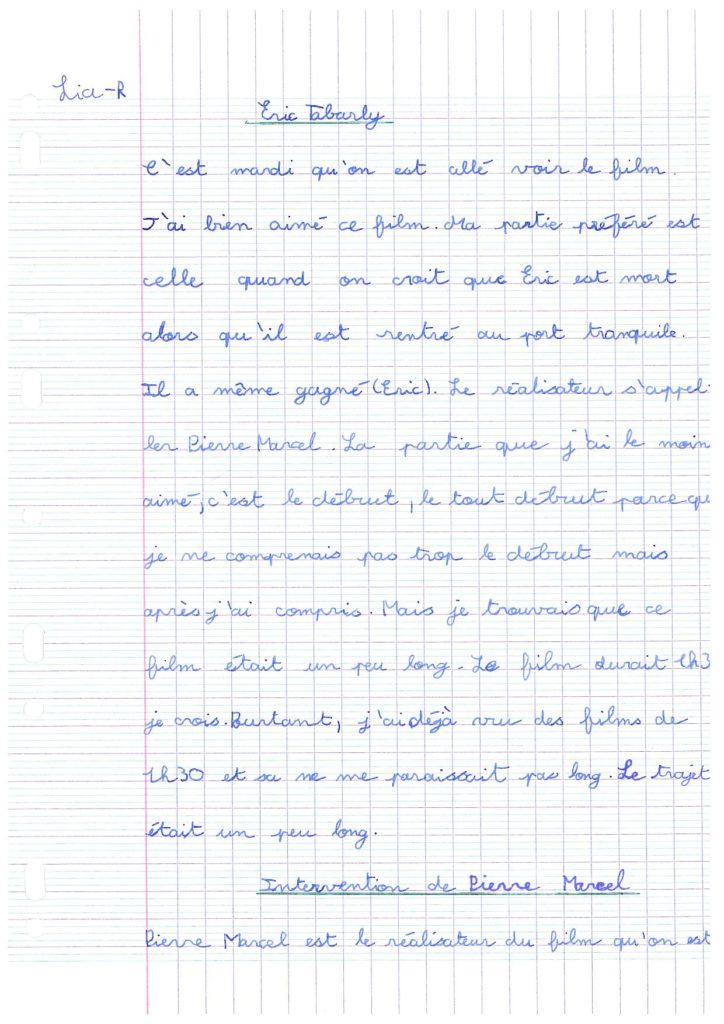 Lia-R
Eric Tabarly
C'est mardi qu'on est allé voir le film.
J'ai bien aimé ce film. Ma partie préféré est
celle quand on croit que Eric est mort
alors qu'il est rentré au port tranquile.
Il a même gagné (Eric). Le réalisateur s'appel-
ler Pierre Marcel. La partie que j'ai le moin
aimé, c'est le début, le tout début parce qu
je ne comprenais pas trop le début mais
après j'ai compris. Mais je trouvais que ce
film était un peu long. Le film durait 1h3
je crois. Purtant, j'ai déjà vu des films de
1h30 et sa ne me paraissait pas long. Le trajet
était un peu long.
Intervention de Pierre Marcel
Pierre Marcel est le réalisateur du film qu'on est